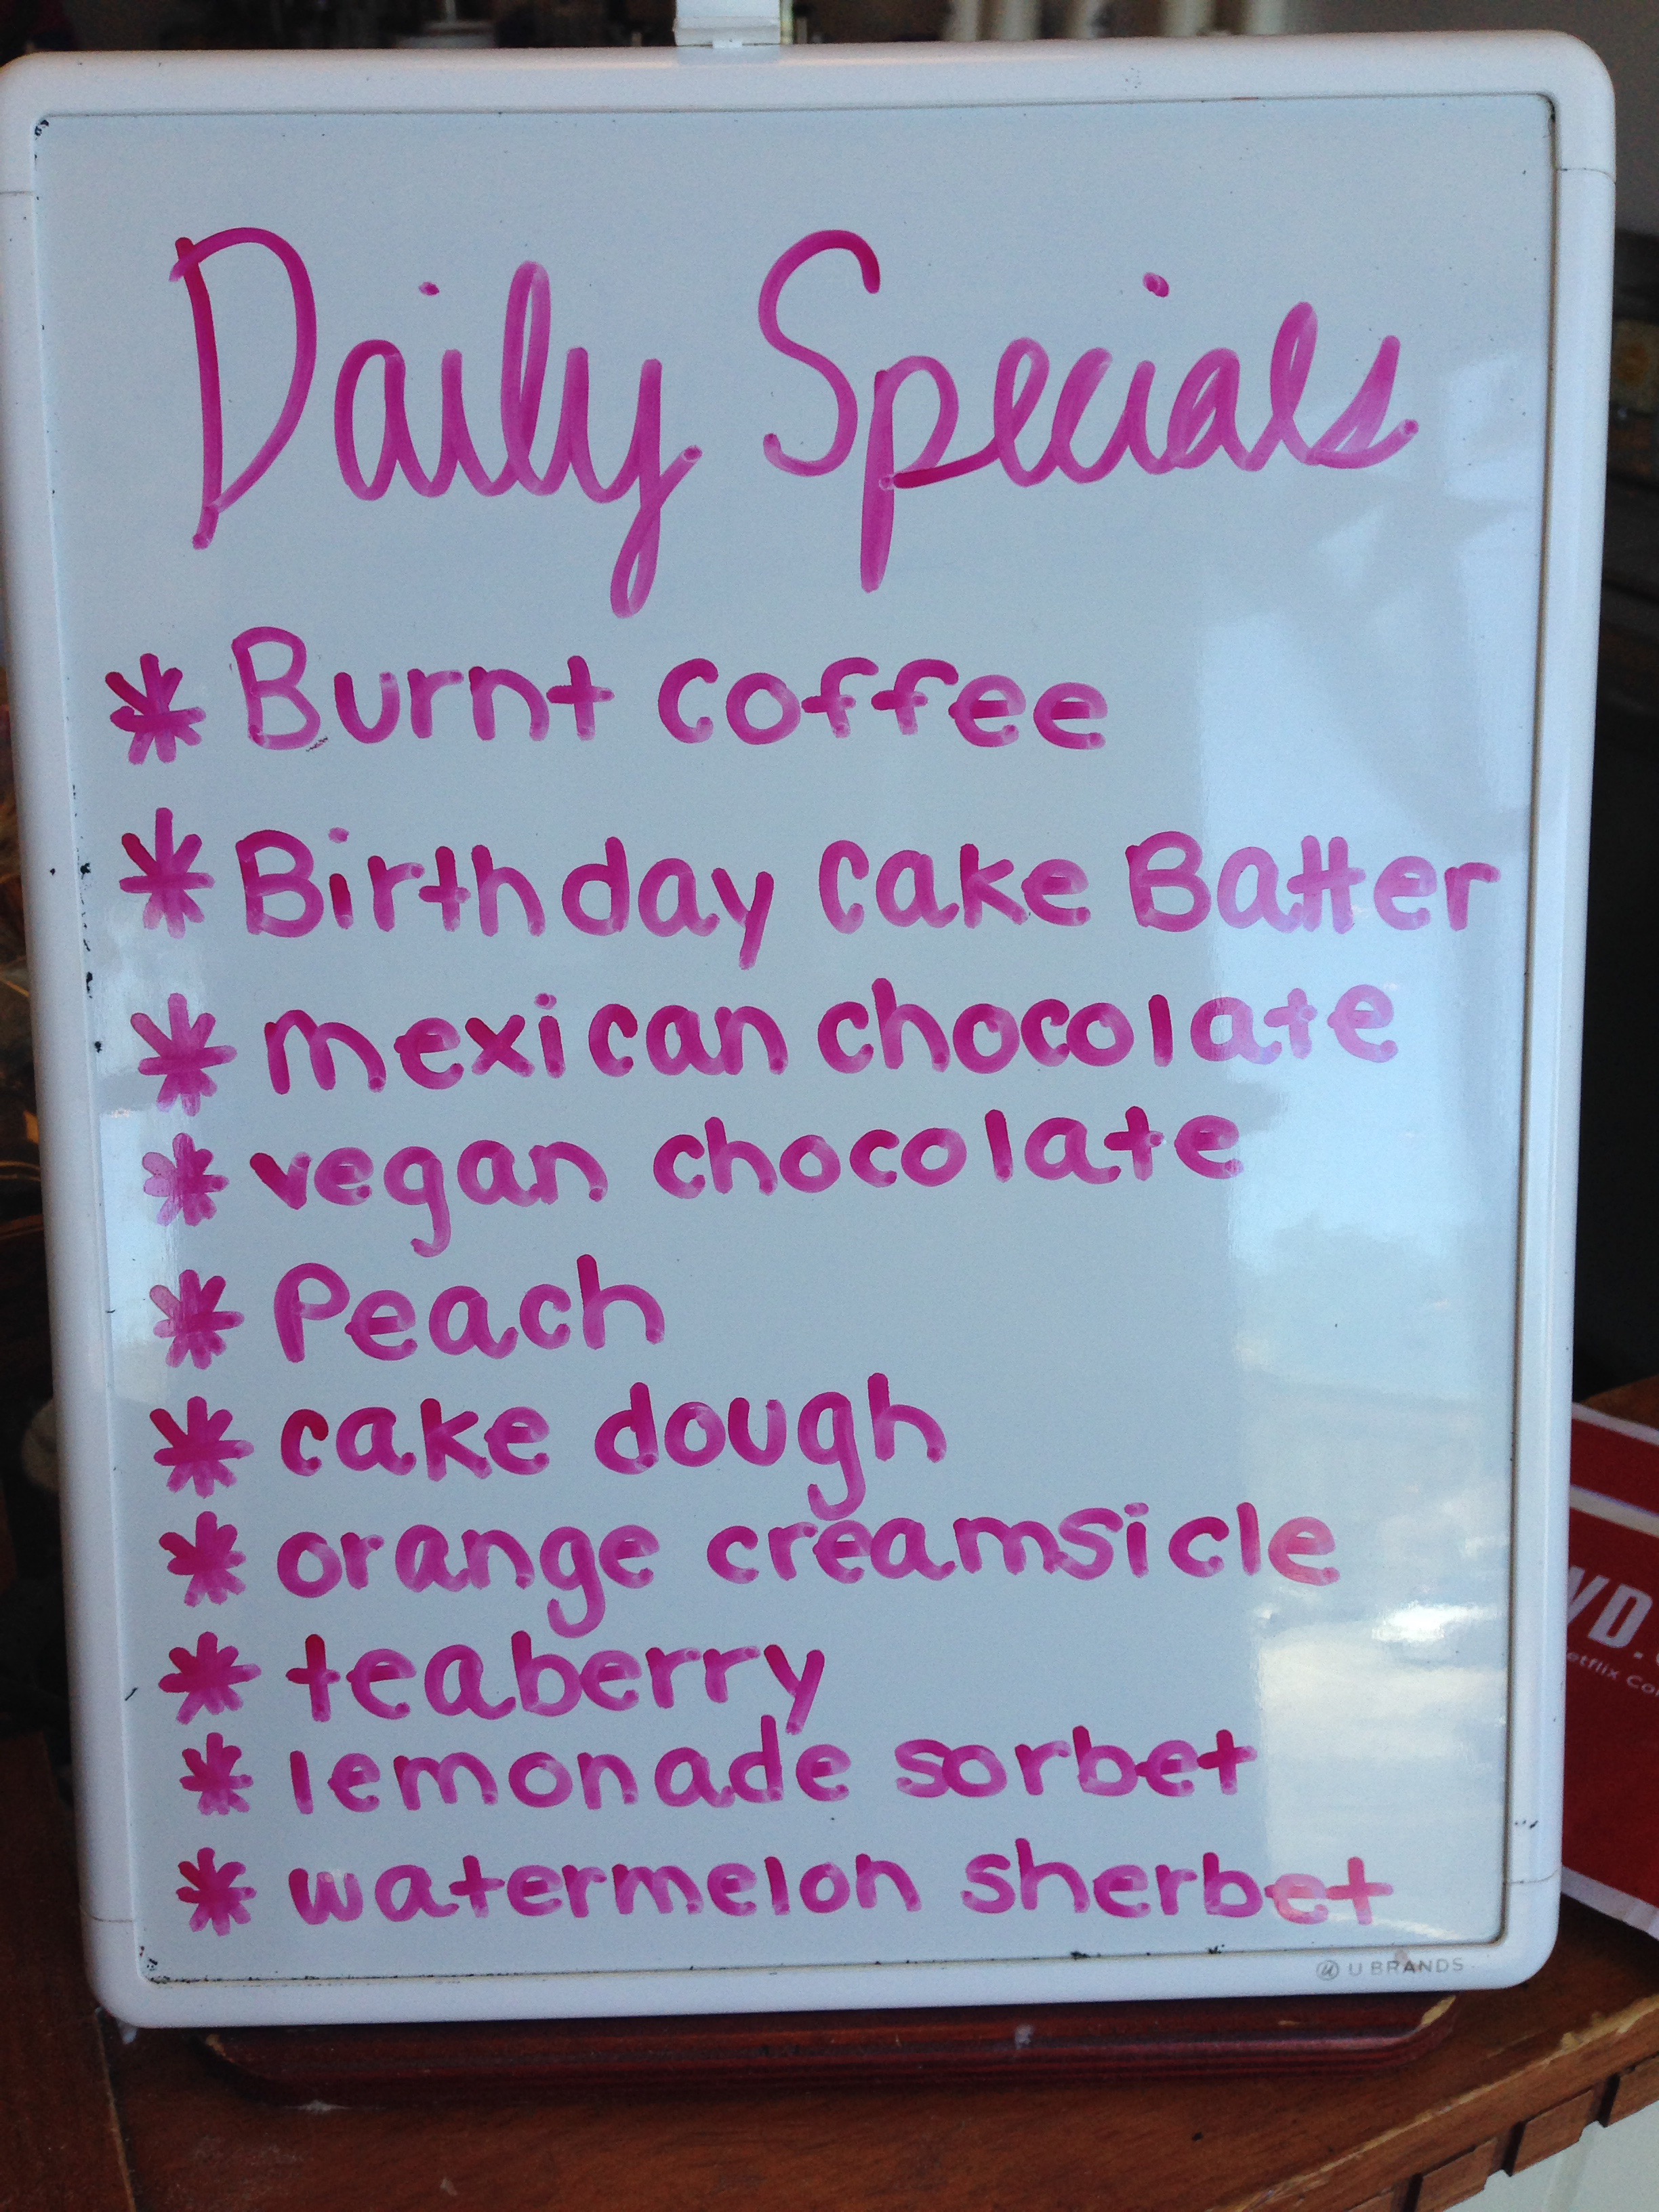 Daily Specials
* Burnt coffee
* Birthday cake Batter
* mexican chocolate
* vegan chocolate
* Peach
* cake dough
* orange creamsicle
* teaberry
* lemonade sorbet
* watermelon sherbet
U BRANDS